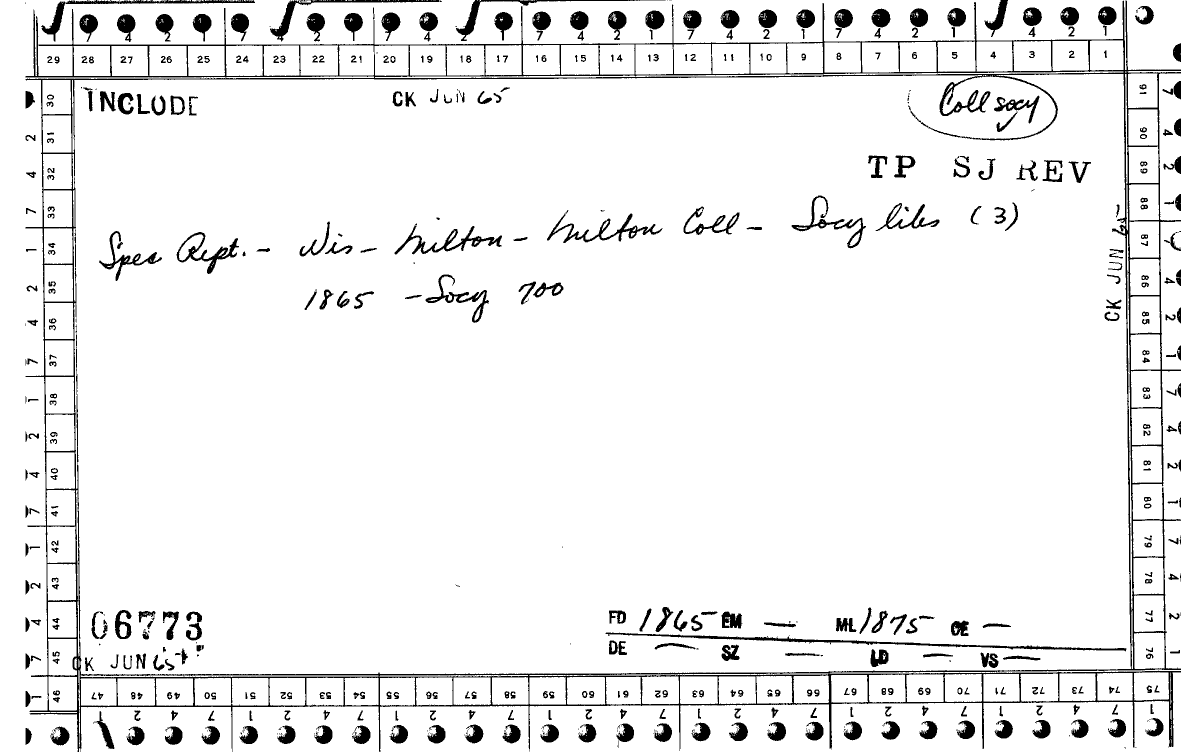 7 4 2 1 7 4 2 1 7 4 2 1 7 4 2 1 7 4 2 1 7 4 2 1 7 4 2 1
29 28 27 26 25 24 23 22 21 20 19 18 17 16 15 14 13 12 11 10 9 8 7 6 5 4 3 2 1
INCLUDE CK JUN 65 Coll socy
TP SJ REV
Spec Rept. - Wis - Milton - Milton Coll - Socy libs (3)
1865 - Socy 700
CK JUN 65
06773
CK JUN 65
FD 1865 EM — ML 1875 CE —
DE — SZ — LD — VS —
30 31 32 33 34 35 36 37 38 39 40 41 42 43 44 45 46
91 90 89 88 87 86 85 84 83 82 81 80 79 78 77 76
47 48 49 50 51 52 53 54 55 56 57 58 59 60 61 62 63 64 65 66 67 68 69 70 71 72 73 74 75
1 2 4 7 1 2 4 7 1 2 4 7 1 2 4 7 1 2 4 7 1 2 4 7 1 2 4 7 1